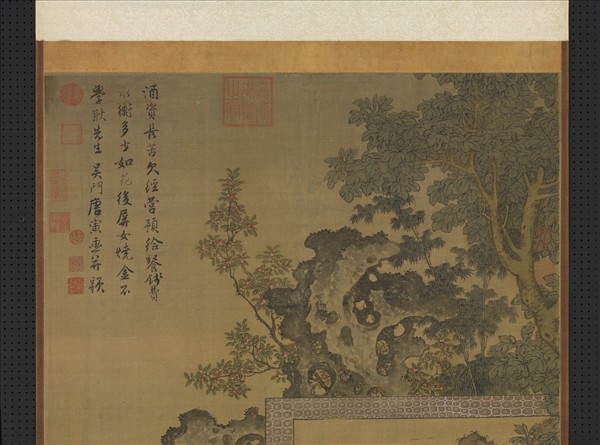 酒資長苦欠經營預給餐錢費
水衡多少如花後屏女燒金不
學耿先生吳門唐寅畫并題